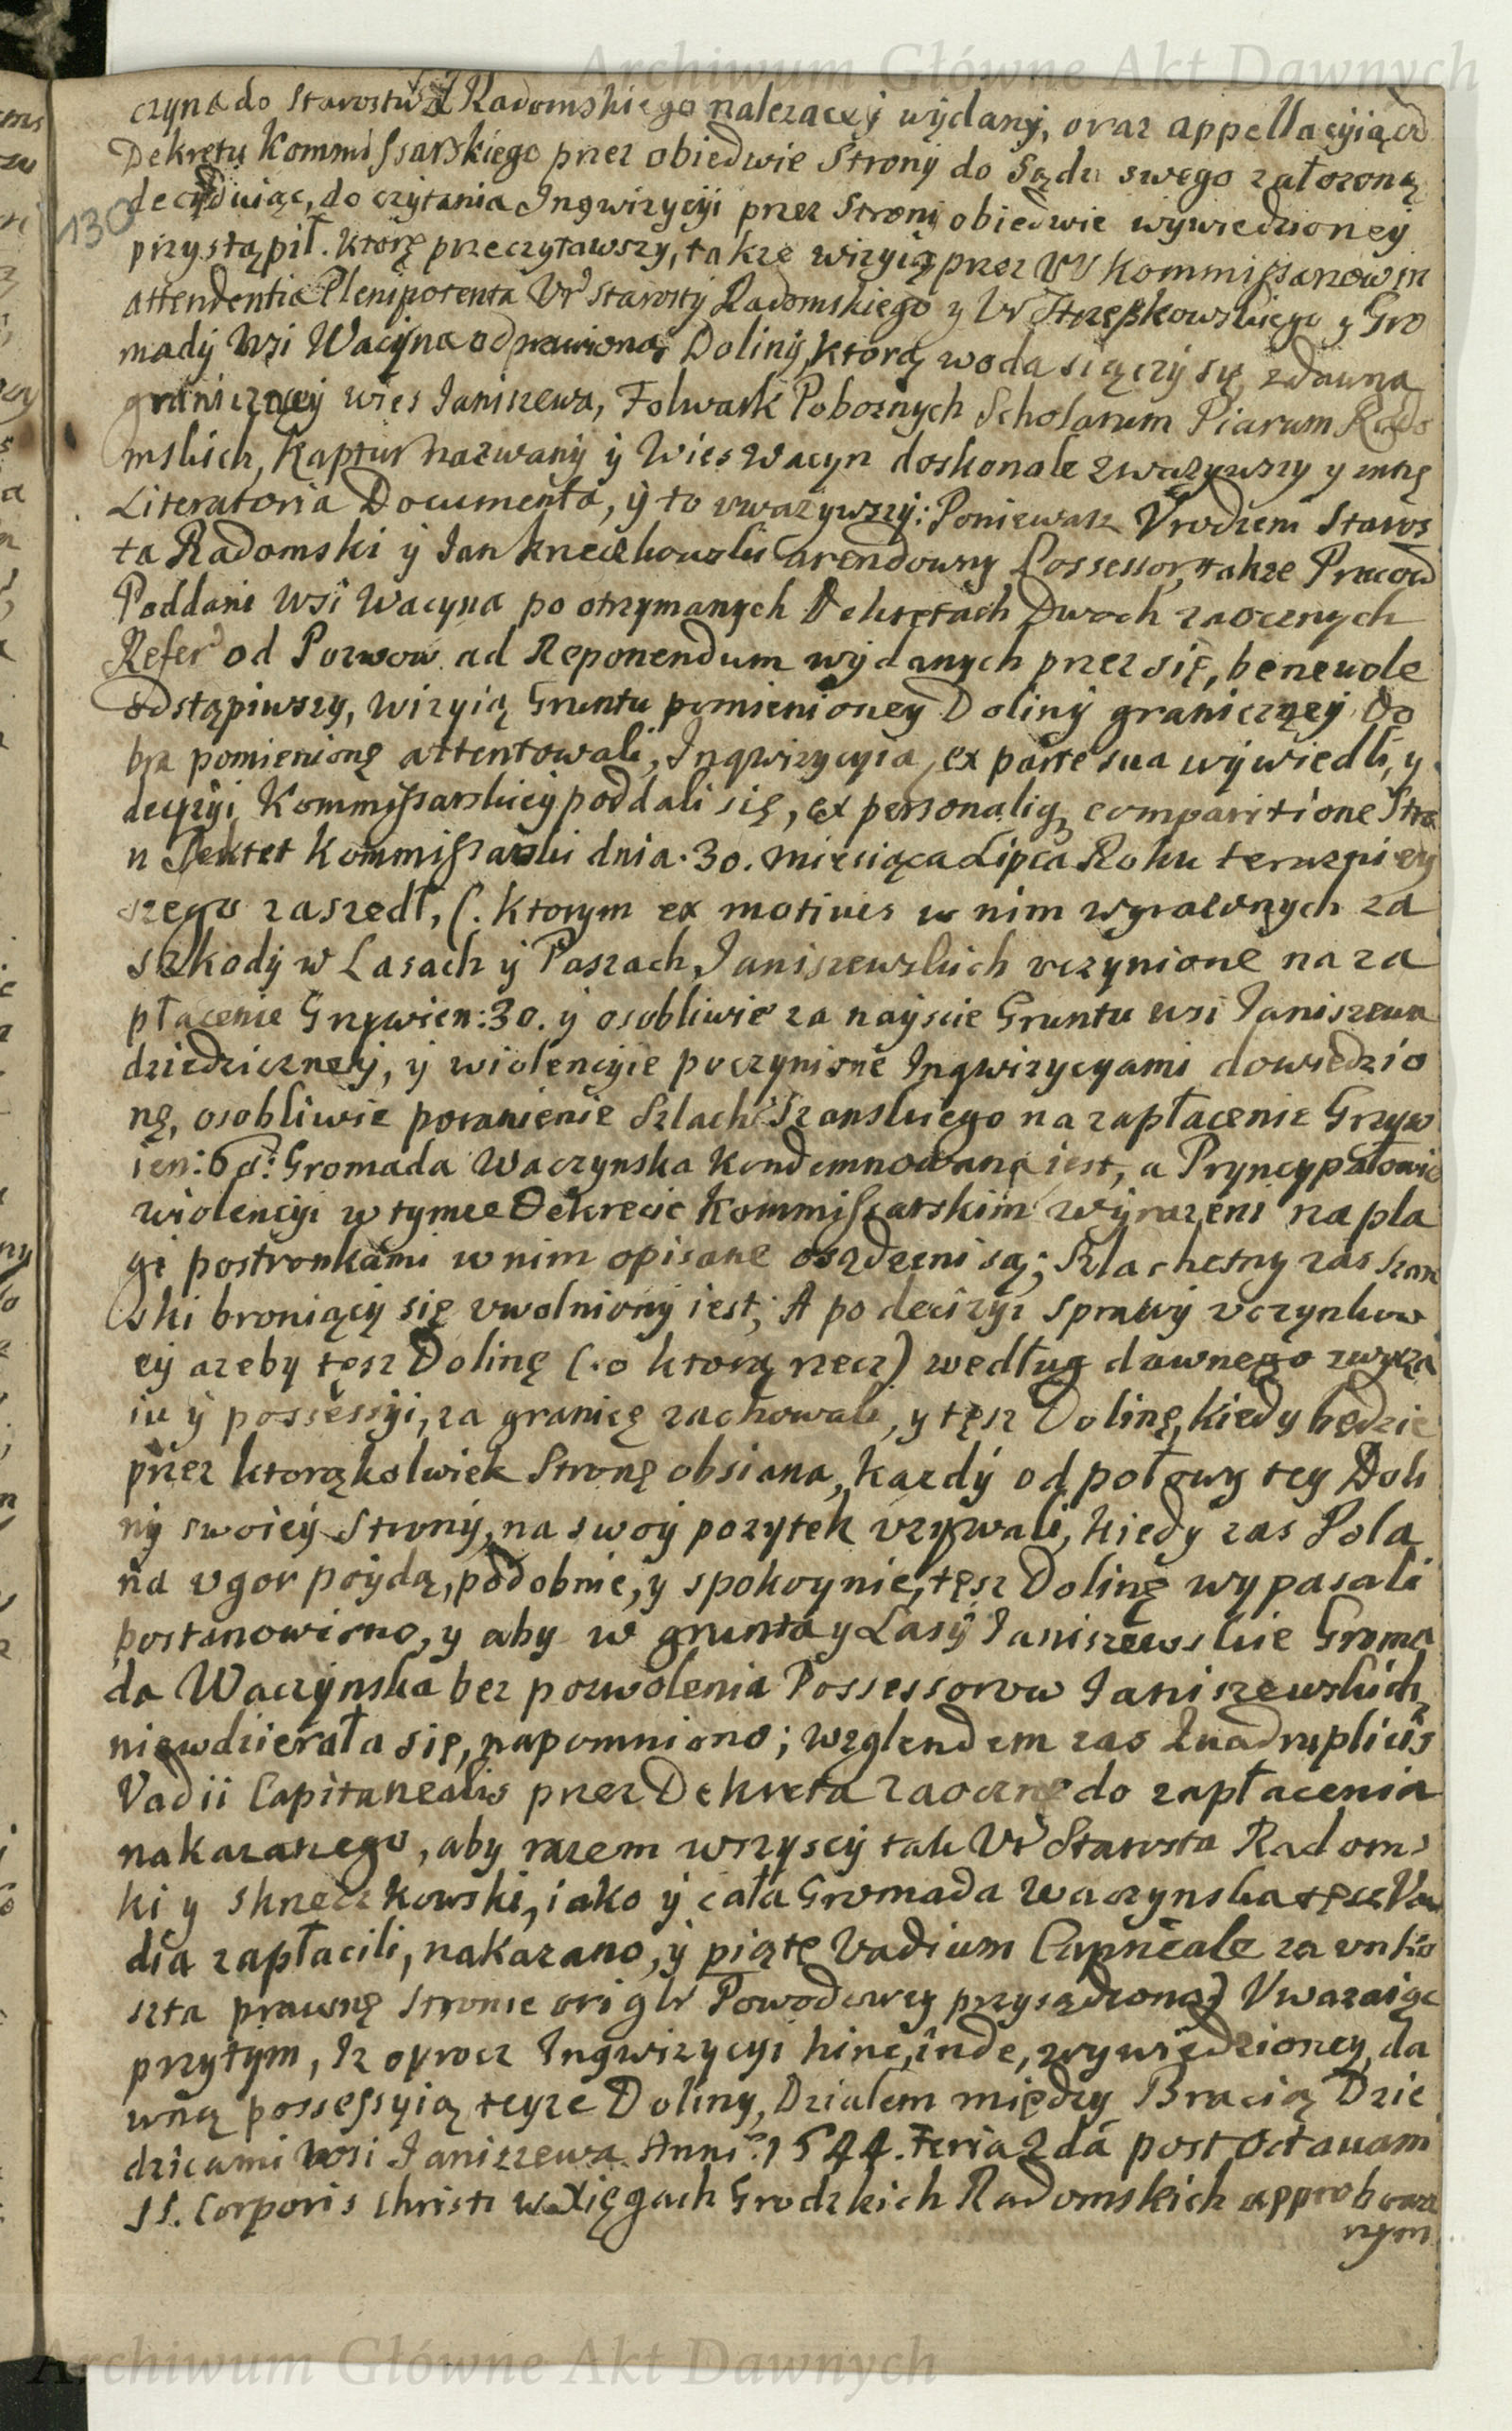 Archiwum Główne Akt Dawnych
czyna do Starostwa Radomskiego nalezacey wydany, oraz appellacyią od
Dekretu Kommissarskiego przez obiedwie Strony do Sądu swego założoną
130
decyduiąc, do czytania Inqwizycyi przez Strony obiedwie wywiedzioney
przystąpił. Ktorę przeczytawszy, takze wizyią przez UU Kommissarzow in
attendentia Plenipotenta Ur Starosty Radomskiego y Ur Strzeszkowskiego y Gro
mady Wsi Wacyna odprawioną Doliny, ktorą woda sięczy się, zdawna
graniczącey wies Janiszewa, Folwark Poboznych Scholarum Piarum Rado
mskich, Kaptur nazwany y Wies Wacyn doskonale zwazywszy y inne
Literatoria Documenta, y to uwazywszy: Poniewasz Urodzeni Staros
ta Radomski y Jan arendowny Possessor, takze Pracow
Poddani Wsi Wacyna po otrzymanych Dekretach Dwoch zaocznych
Refer od Pozwow ad Reponendum wydanych przez się, beneuole
odstąpiwszy, wizyią Gruntu pomienioney Doliny graniczney Do
bra pomienionę attentowali, Inqwizycyia, ex parte sua wywiedli, y
decyzyi Kommissarskiey poddali się, ex personaliq comparitione Stro
n Dektet Kommissarski dnia 30. miesiąca Lipca Roku terazniey
szego zaszedł, (. Ktorym ex motiuis w nim wyrazonych za
szkody w Lasach y Paszach Janiszewskich uczynione na za
płacenie Grzywien: 30. y osobliwie za nayscie Gruntu wsi Janiszewa
dziedziczney, y wiolencyie poczynione Inqwizycyami dowiedzio
nę, osobliwie poranienie Szlach Szanskiego na zapłacenie Grzyw
ien: 60: Gromada Waczynska kondemnowana iest, a Pryncypałowie
wiolencyi w tymze Dekrecie Kommissarskim wyrazeni na pla
gi postronkami w nim opisane osądzeni są; Szlachetny zas Szan
ski broniący się uwolniony iest; A po decizyi Sprawy uczynkow
ey azeby tęsz Dolinę (. o ktorą rzecz) według dawnego zwycza
iu y possessyi, za granicę zachowali, y tęsz Dolinę, kiedy będzie
przez ktorąkolwiek Stronę obsiana, kazdy od połowy tey Doli
ny swoiey Strony, na swoy pozytek uzywali, kiedy zas Pola
na ugor poydą, podobnie, y spokoynie, tęsz Dolinę wypasali
postanowiono, y aby w grunta y Lasy Janiszewskie Groma
da Waczynska bez pozwolenia Possessorow Janiszewskich
niewdzierała się, napomniono; wzglendem zas Quadruplicis
Vadii Capitanealis przez Dekreta zaoczne do zapłacenia
nakazanego, aby razem wszyscy tak Ur Starosta Radoms
ki y Skneczkowski, iako y cała Gromada Waczynska tęsz Va
dia zapłacili, nakazano, y piątę Vadium Capneale za unko
szta prawnę Stronie orig Ur Powodowey przysądzono) Uwazaiąc
przytym, Iz oprocz Inqwizycyi hinc, inde, wywiedzioney, da
wną possessyią teyze Doliny, Działem między Bracią Dzie
dzicami wsi Janiszewa Anni 1544. Feria 2da post Octauam
SS. Corporis Christi w Xięgach Grodzkich Radomskich approbowa
nym
Archiwum Główne Akt Dawnych